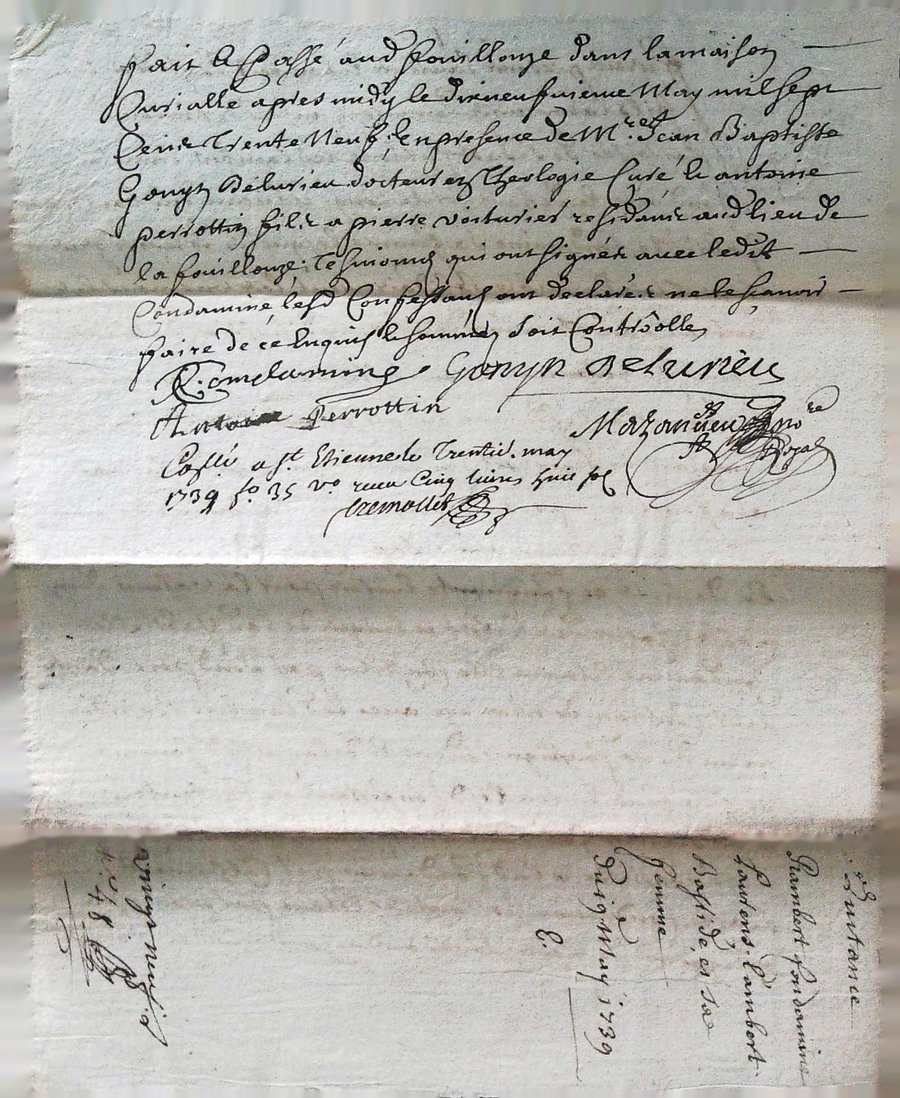 fait & Passé aud fouillouze dans la maison
Curialle apres midy le dixneufuieme May mil sept
Cent Trente Neuf, En presence de Mre Jean Baptiste
Gonyn Delurieu docteur en Theologie Curé & antoine
perrottin fils a pierre voiturier residant aud lieu de
la fouillouze, Tesmoins qui ont signés auec ledit
Condamine, lesd Confessans ont declarés ne le sçauoir
faire de ce Enquis & sommés Soit Controolle,
R. Condamine Gonyn Delurieu
Antoine Perrottin
Mazandieu nore
Royal
a st Etienne le Trente may
1739 fo 35 vo receu Cinq liures huit sol
tremollet
Quitance
Rambert Condamine
Lambert
Bastide, et sa
femme
Du 19 May 1739
E.
48